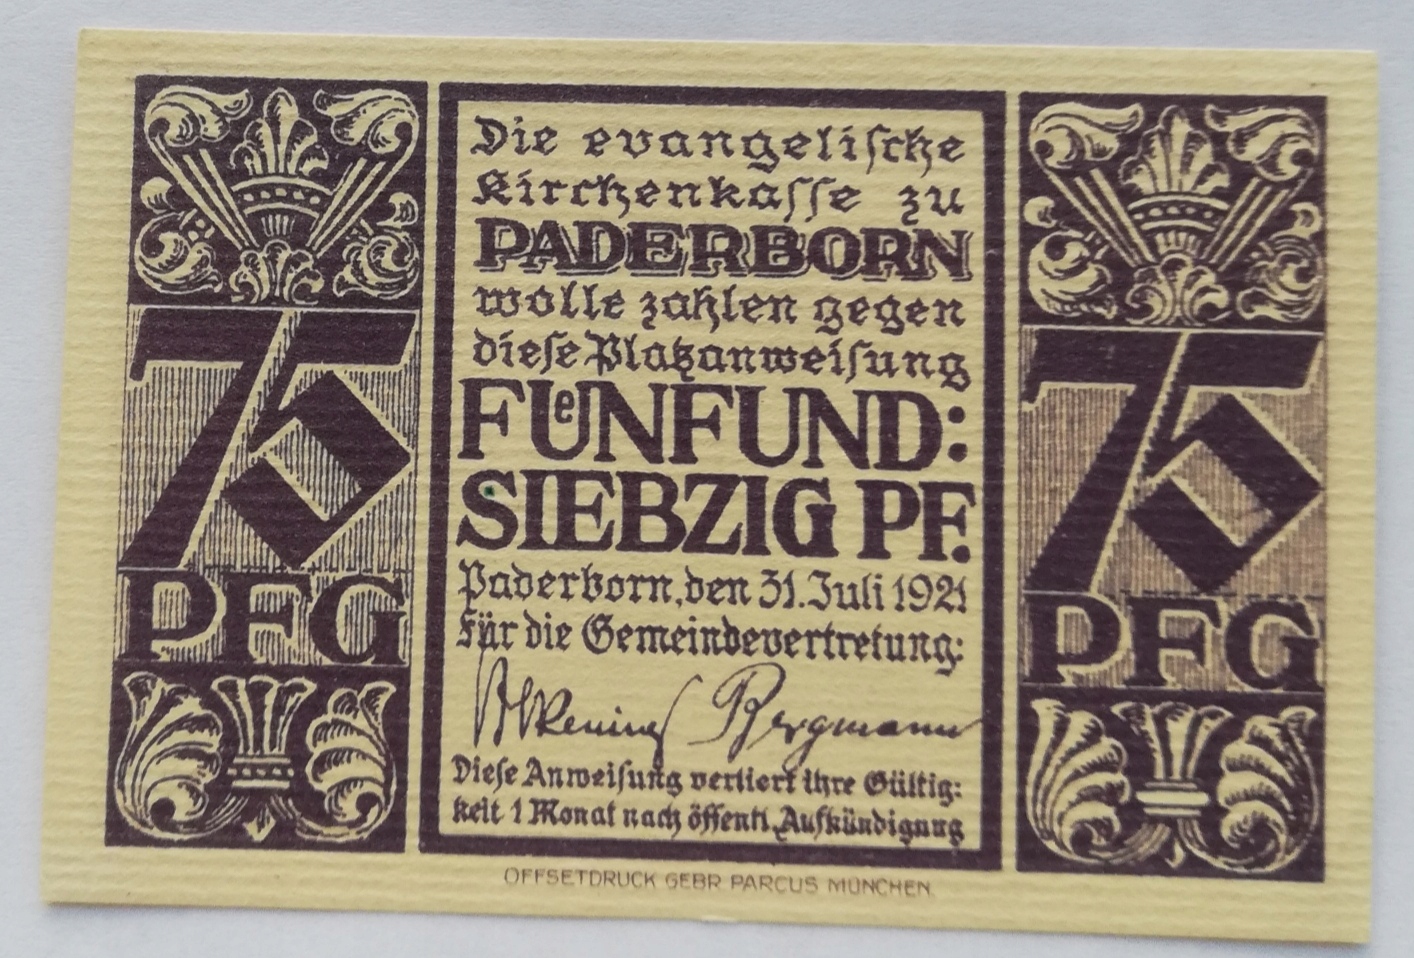 Die evangelische
Kirchenkasse zu
PADERBORN
wolle zahlen gegen
diese Platzanweisung
75
75
FUͤNFUND:
SIEBZIG PF.
PFG
PFG
Paderborn, den 31. Juli 1921
Für die Gemeindevertretung:
Bergmann
Diese Anweisung verliert ihre Gültig:
keit 1 Monat nach öffentl. Aufkündigung
OFFSETDRUCK GEBR PARCUS MÜNCHEN.